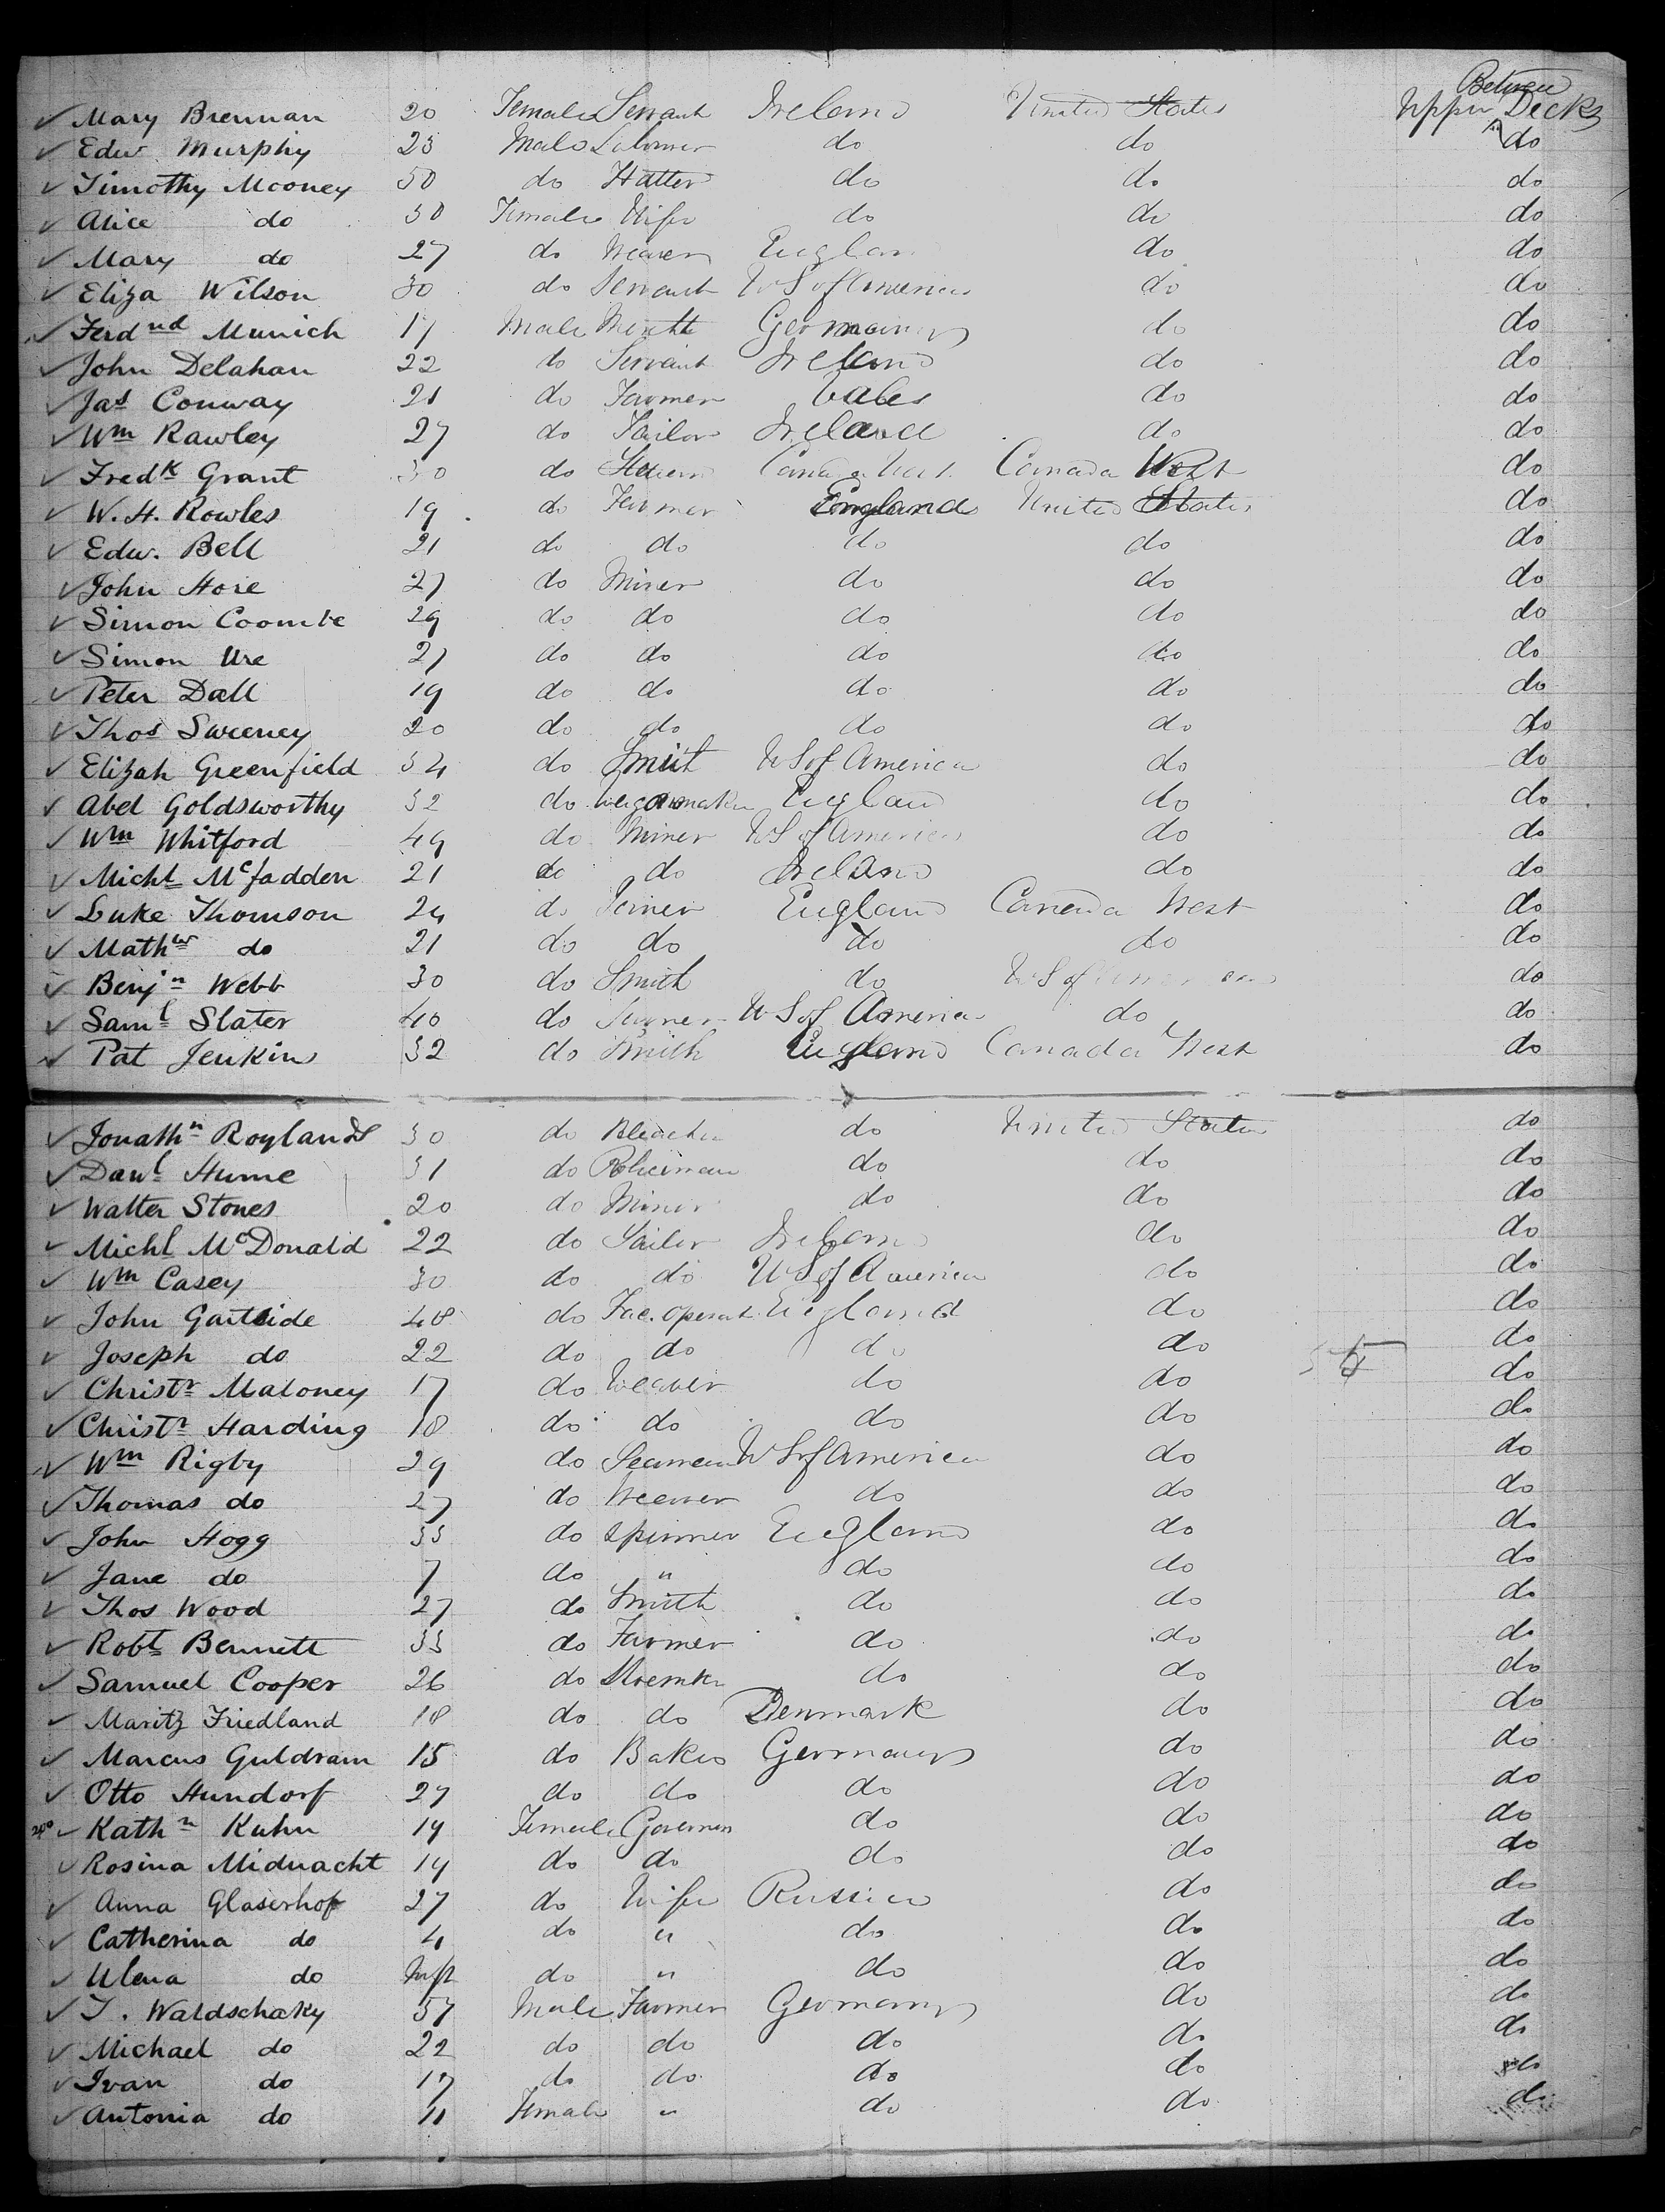 Between
✓ Mary Brennan 20 Female Servant Ireland United States Upper Decks
✓ Edw Murphy 23 Male Laborer do do do
✓ Timothy Mooney 50 do Hatter do do do
✓ Alice do 50 Female Wife do do do
✓ Mary do 27 do Weaver England do do
✓ Eliza Wilson 30 do Servant U S of America do do
✓ Ferdnd Munich 17 Male Germany do do
✓ John Delahan 22 do Servant Ireland do do
✓ Jas Conway 21 do Farmer Wales do do
✓ Wm Rawley 27 do Tailor Ireland do do
✓ Fredk Grant 30 do Canada West Canada West do
✓ W. H. Rowles 19 do Farmer England United States do
✓ Edw. Bell 21 do do do do do
✓ John Hore 27 do Miner do do do
✓ Simon Coombe 29 do do do do do
✓ Simon Ure 27 do do do do do
✓ Peter Dall 19 do do do do do
✓ Thos Sweeney 20 do do do do do
✓ Elizah Greenfield 34 do Smith U S of America do do
✓ Abel Goldsworthy 32 do England do do
✓ Wm Whitford 49 do Miner U S of America do do
✓ Michl McFadden 21 do do Ireland do do
✓ Luke Thomson 24 do Joiner England Canada West do
✓ Mathw do 21 do do do do do
✓ Benjn Webb 30 do Smith do U S of American do
✓ Saml Slater 40 do U S of America do do
✓ Pat Jenkins 32 do Smith England Canada West do
✓ Jonathn Roylands 30 do Bleacher do United States do
✓ Danl Hume 31 do Policeman do do do
✓ Walter Stones 20 do Miner do do do
✓ Michl McDonald 22 do Sailor Ireland do do
✓ Wm Casey 30 do do U S of America do do
✓ John Gartside 48 do Fac. operat. England do do
✓ Joseph do 22 do do do do do
✓ Christr Maloney 17 do Weaver do do do
✓ Christr Harding 18 do do do do do
✓ Wm Rigby 29 do Seaman U S of America do do
✓ Thomas do 27 do Weaver do do do
✓ John Hogg 33 do Spinner England do do
✓ Jane do 7 do " do do do
✓ Thos Wood 27 do Smith do do do
✓ Robt Bennett 33 do Farmer do do do
✓ Samuel Cooper 26 do Shoemkr do do do
✓ Maritz Friedland 18 do do Denmark do do
✓ Marcus Guldram 15 do Baker Germany do do
✓ Otto Hundorf 27 do do do do do
✓ Kathn Kuhn 19 Female Governess do do do
✓ Rosina Midnacht 19 do do do do do
✓ Anna Glaserhof 27 do Wife Russia do do
✓ Catherina do 4 do " do do do
✓ Ulena do Inft do " do do do
✓ I. Waldschaky 57 Male Farmer Germany do do
✓ Michael do 22 do do do do do
✓ Ivan do 17 do do do do do
✓ Antonia do 11 Female " do do do